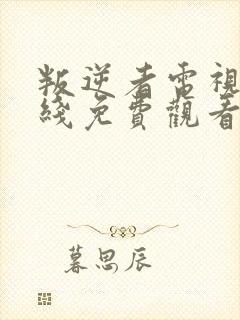 叛逆者電視
綫免費觀看
暮思辰